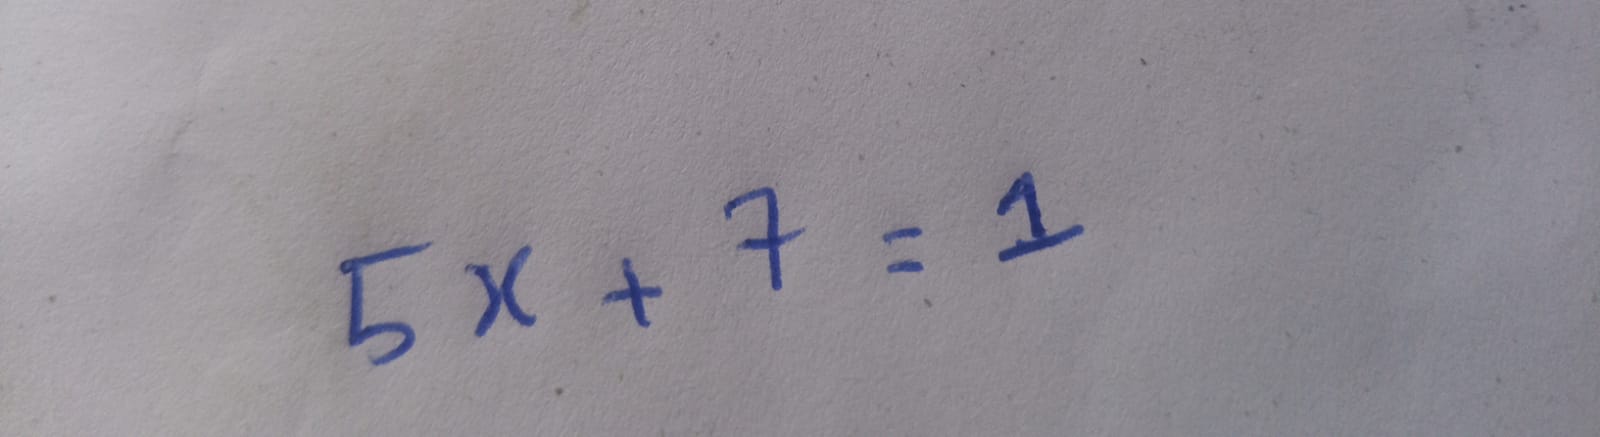 5x + 7 = 1